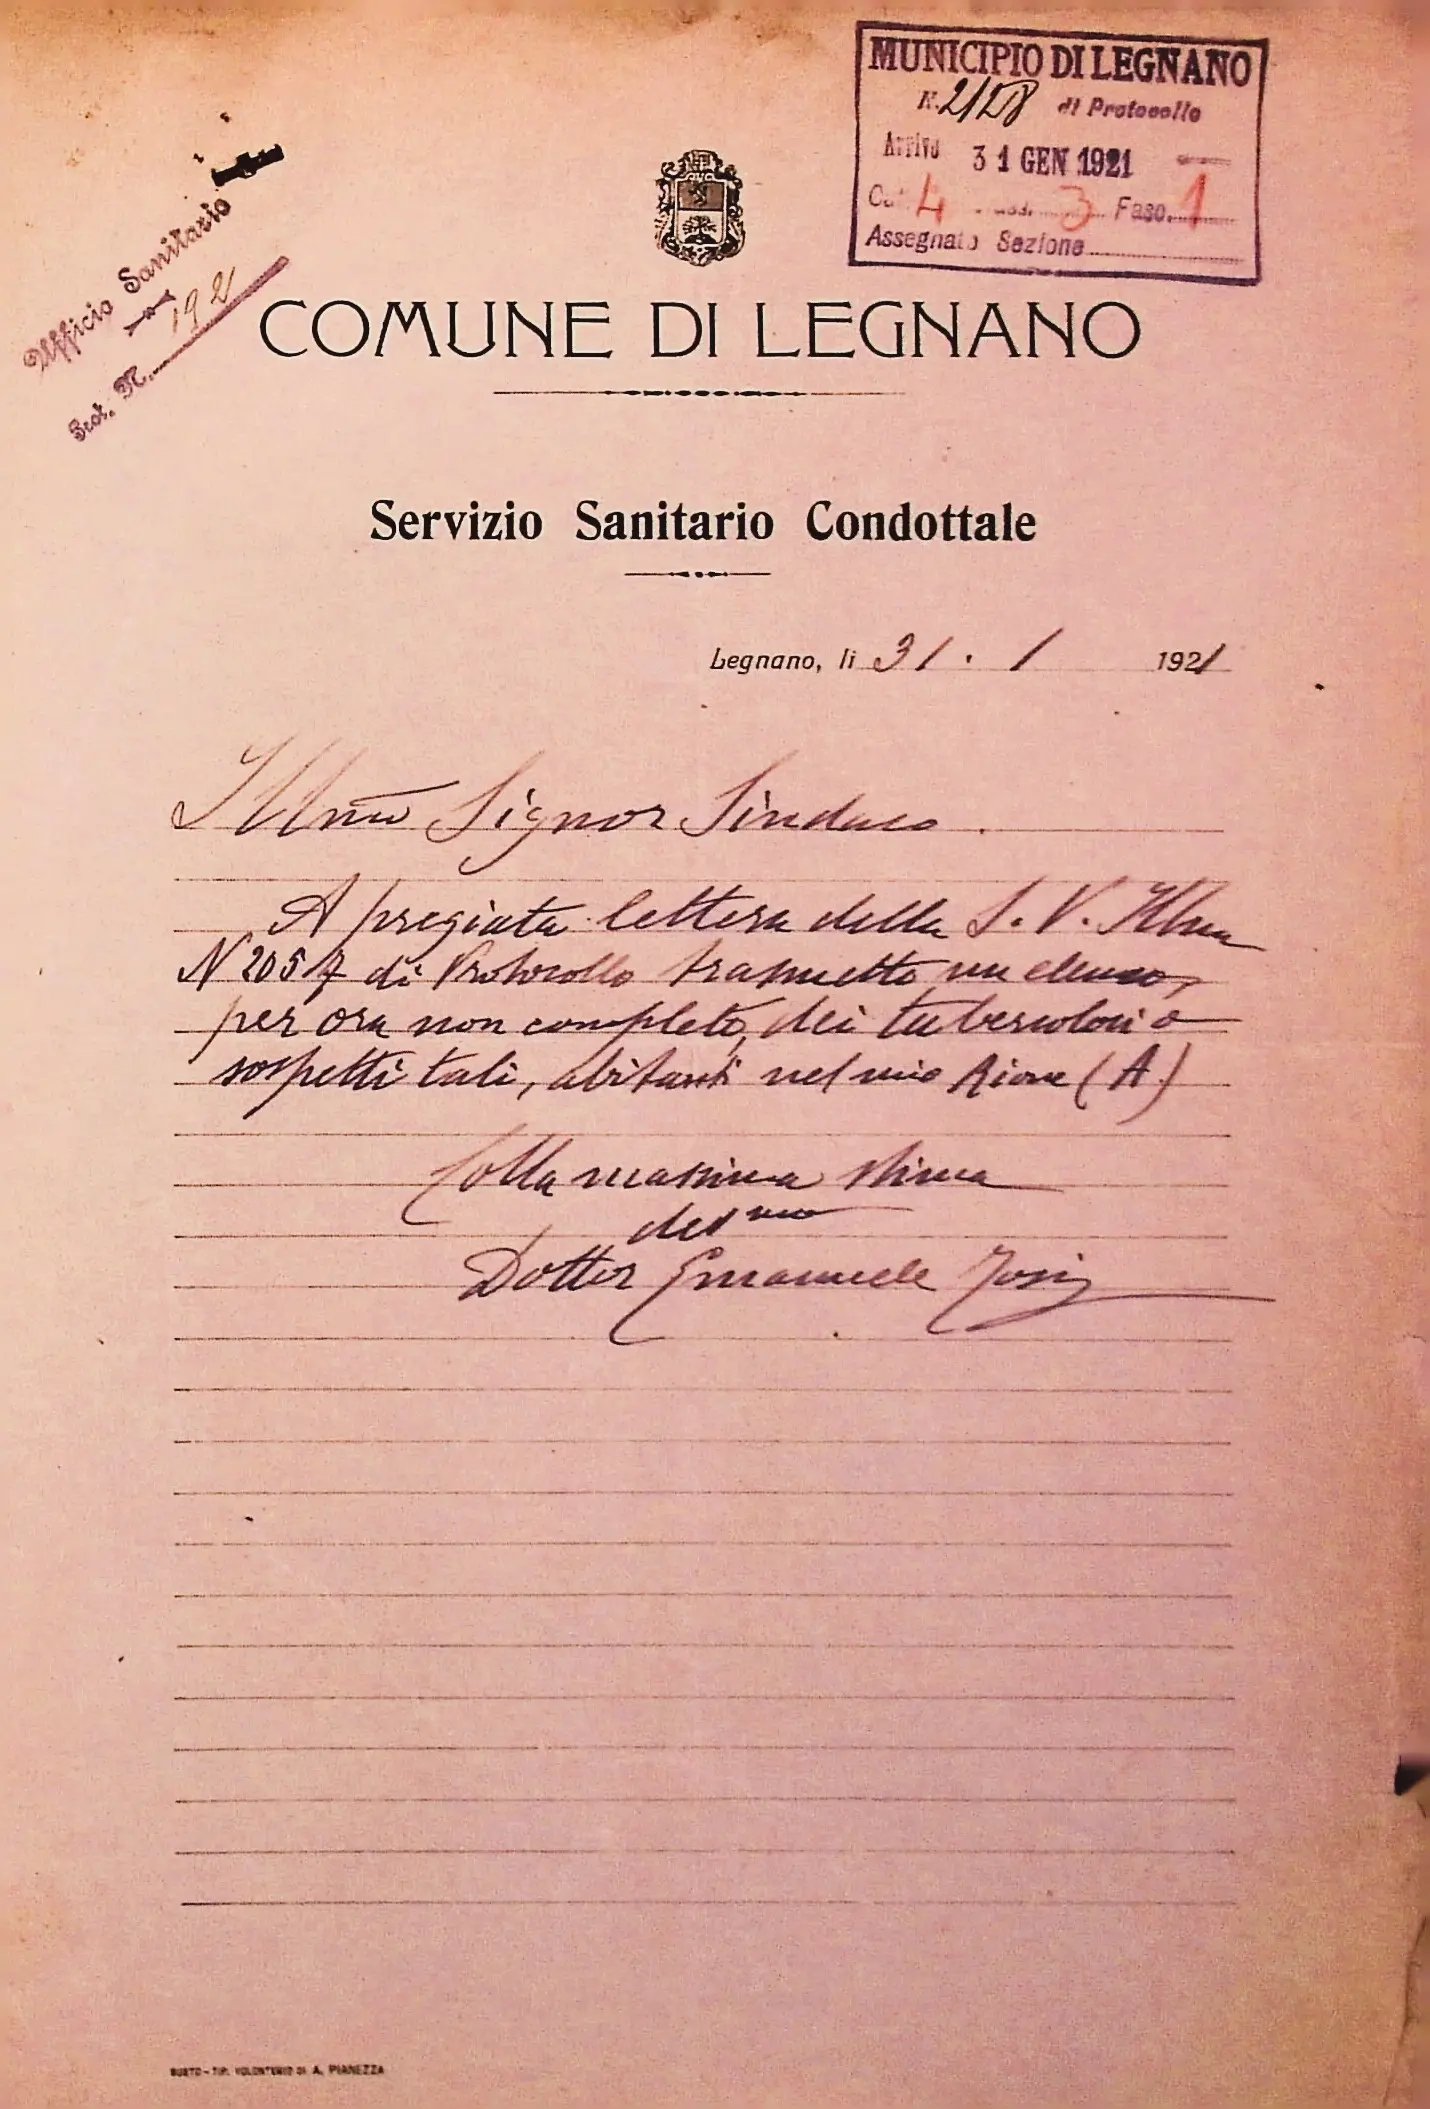 MUNICIPIO DI LEGNANO
N. 2128 di Protocollo
Arrivo 31 GEN 1921
Cat. 4 Class. 3 Fasc. 1
Assegnato Sezione
Ufficio Sanitario
1921
Prot. N.
COMUNE DI LEGNANO
Servizio Sanitario Condottale
Legnano, li 31 . 1 1921
Illmo Signor Sindaco .
A pregiata lettera della S. V. Illma
N 2057 di Protocollo trasmetto un elenco,
per ora non completo, dei tubercolosi o
sospetti tali, abitanti nel mio Rione (A)
Colla massima stima
dev mo
Dottor Emanuele
BUSTO - TIP. VOLONTERIO DI A. PIANEZZA